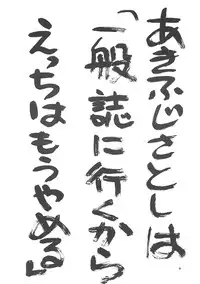 あきふじさとしは、
「一般誌に行くから
えっちはもうやめる」